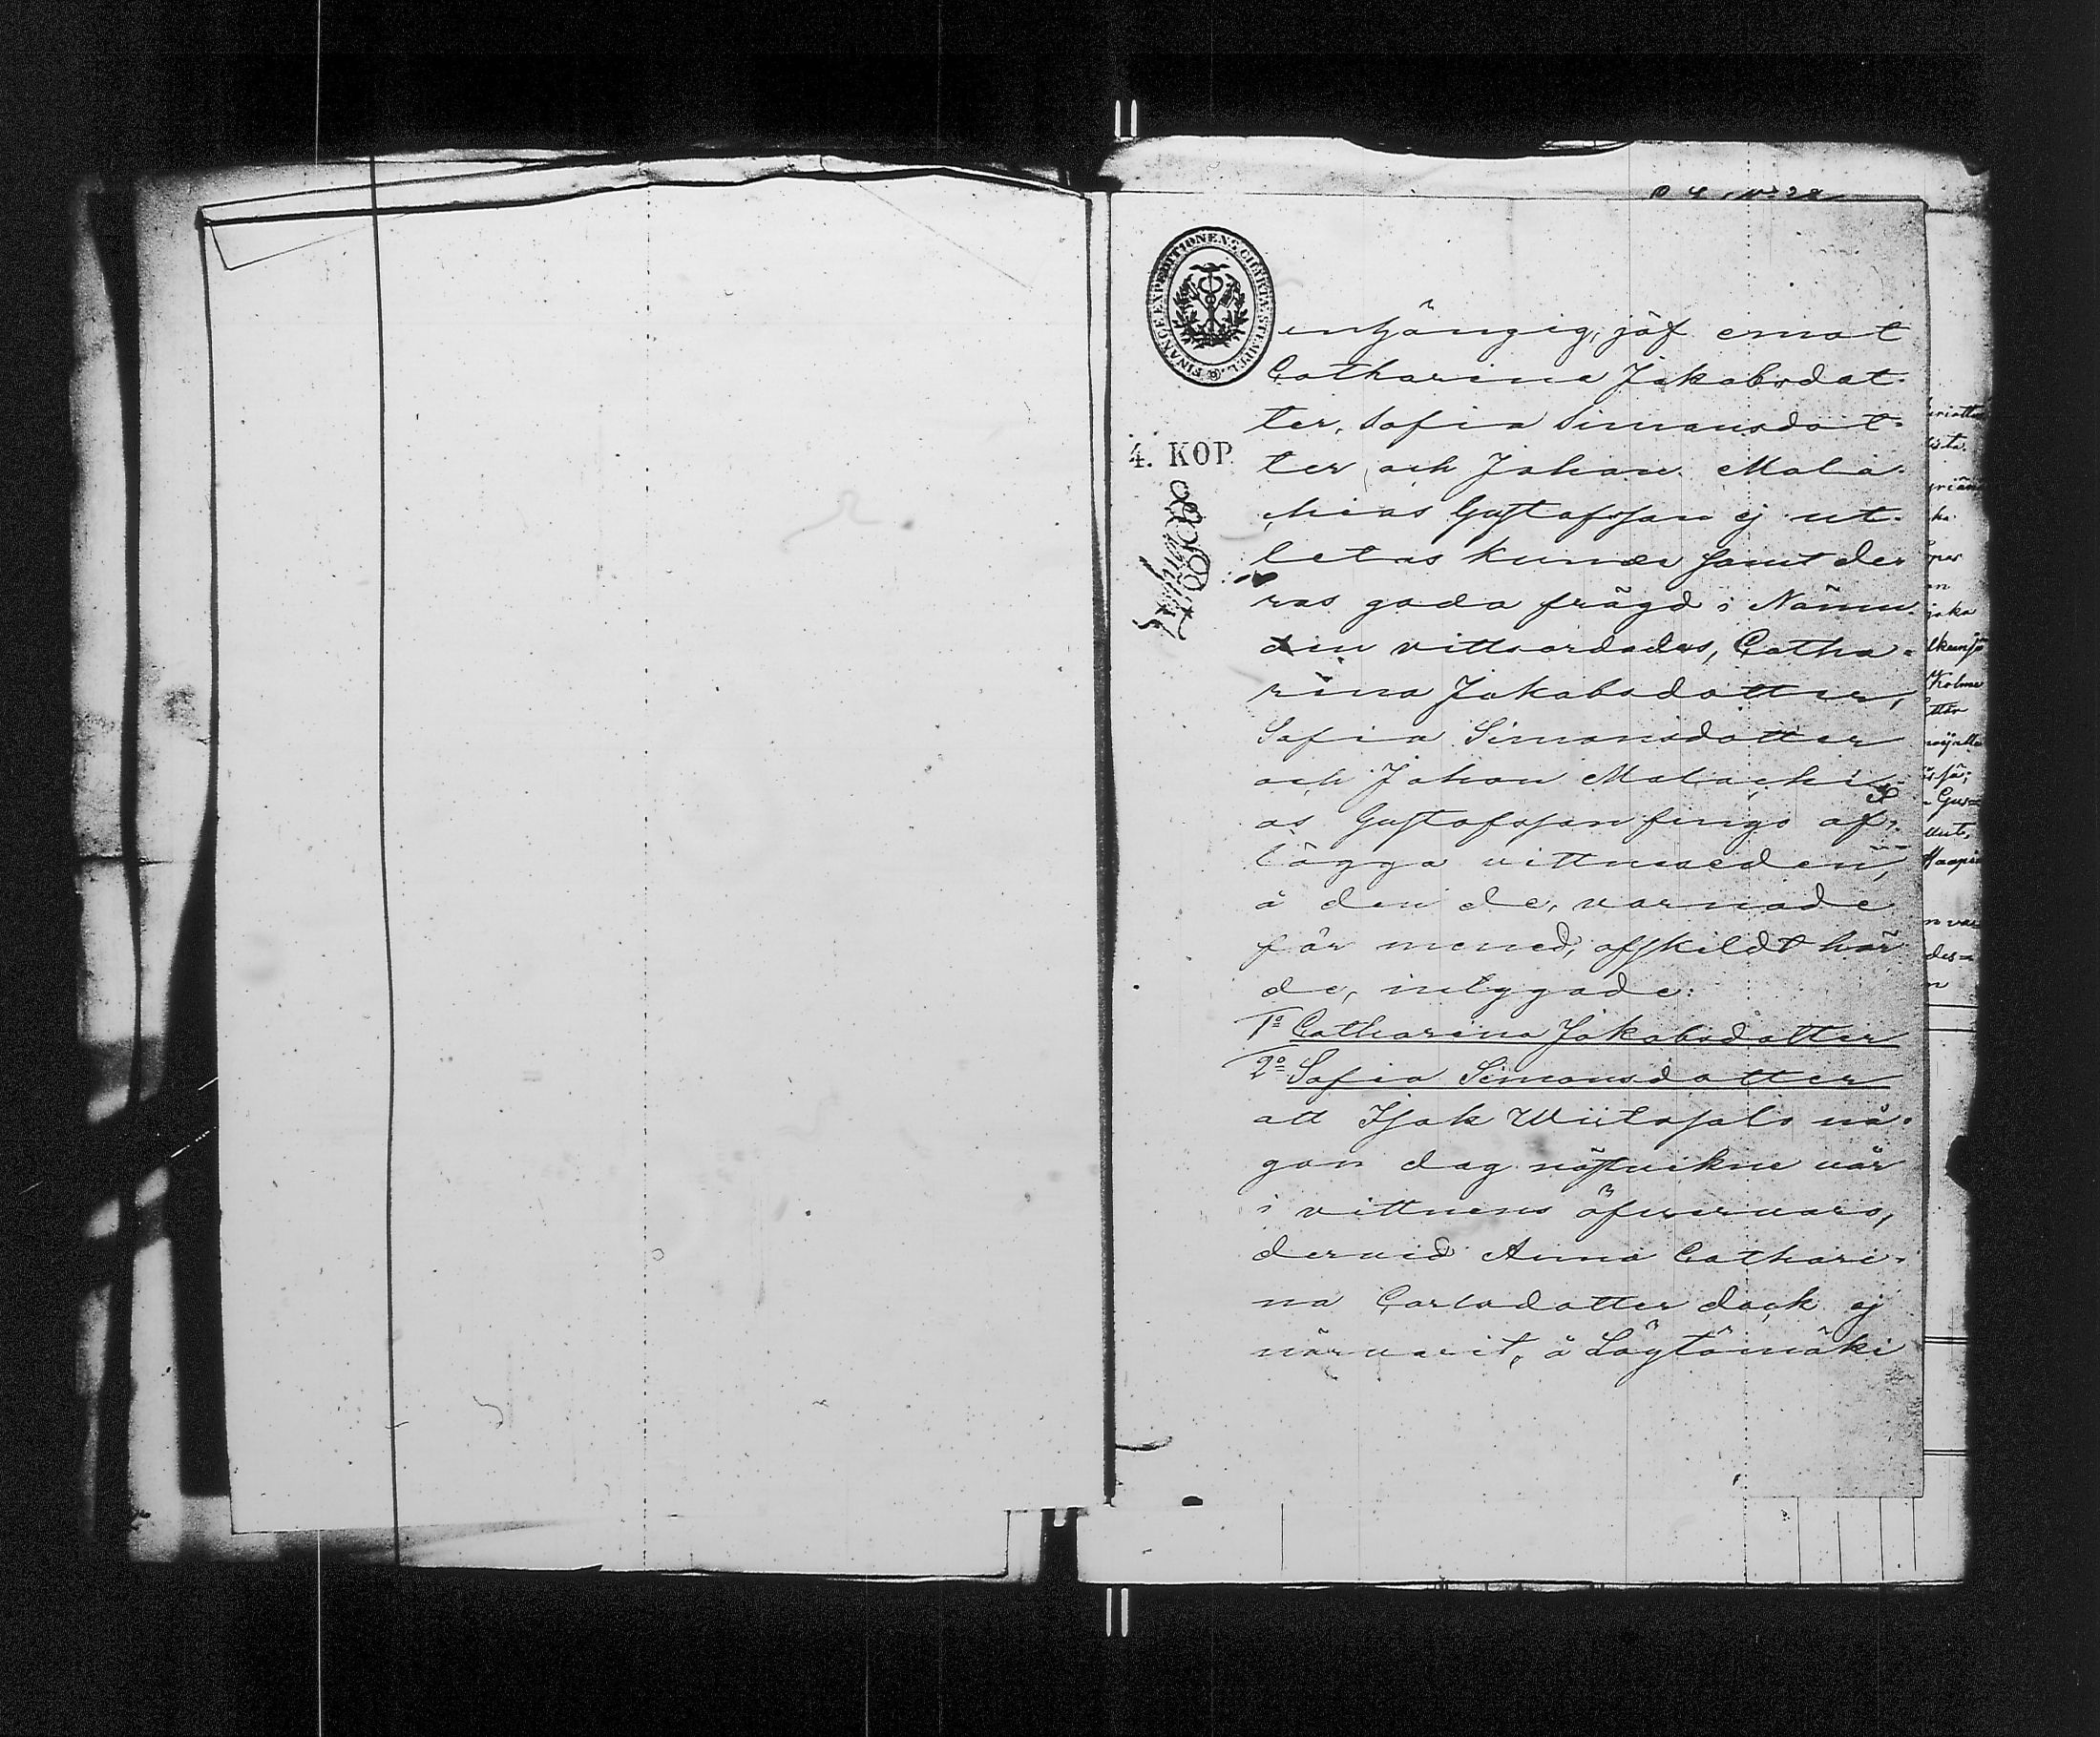 FINANCE EXPEDITIONENS CHARTÆ STEMPEL
4. KOP.
inhängig, jäf emot
Catharina Jakobsdot-
ter, Sofia Simonsdot-
ter och Johan Mala-
chias Gustafsson ej ut-
letas kunde samt de-
ras goda frägd i Nämn-
den vittsordades, Catha-
rina Jakobsdotter,
Sofia Simonsdotter
och Johan Malachi-
as Gustafsson fingo af-
lägga vittneseden,
å den de, varnade
för mened, afskildt hör-
de, intygade:
1o Catharina Jakobsdotter
2o Sofia Simonsdotter
att Isak Wiitasalo nå-
gon dag nästvikne vår
i vittnens öfvervaro,
dervid Anna Cathari-
na Carlsdotter dock ej
närvarit, å Löytömäki